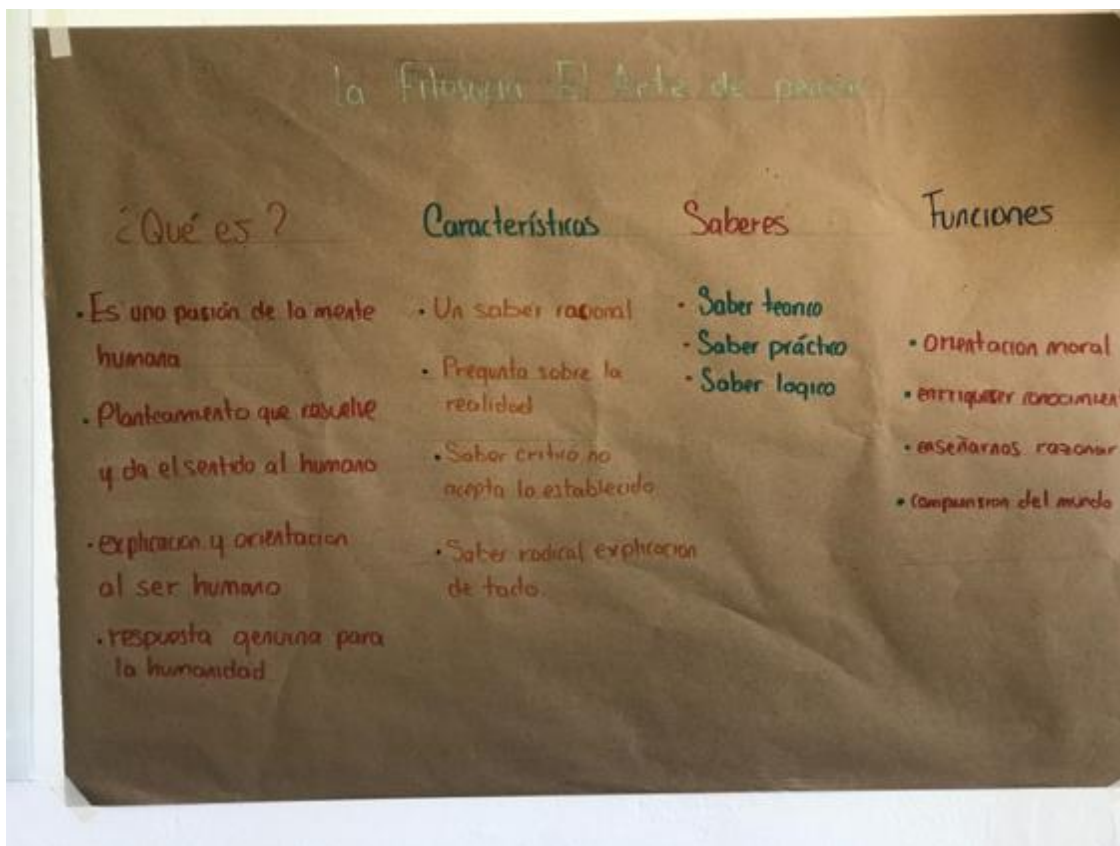 La Filosofia El Arte de pensar
¿Qué es?
• Es una pasión de la mente
humana
• Planteamiento que resuelve
y da el sentido al humano
• explicacion y orientacion
al ser humano
• respuesta genuina para
la humanidad
Características
• Un saber racional
• Pregunta sobre la
realidad
• Saber critico no
acepta lo establecido
• Saber radical explicacion
de todo.
Saberes
• Saber teorico
• Saber práctico
• Saber logico
Funciones
• orientacion moral
• conocimient
• enseñarnos razonar
• del mundo